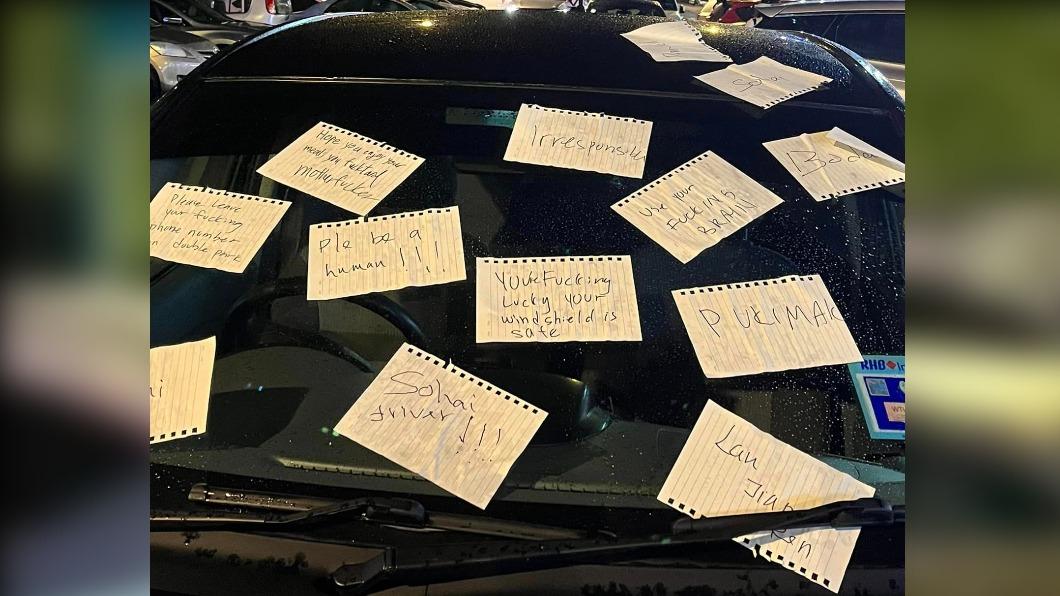 Sohai
Irresponsible
Hope you enjoy your
meal you fucktard
Motherfucker
Boda
Use your
FUCKING
BRAIN
Please leave
your fucking
phone number
on double park
Ple be a
human !!!!
Your Fucking
Lucky your
windshield is
safe
PUKIMAK
RHB
Sohai
driver !!!
Lan
Jiao
Ren